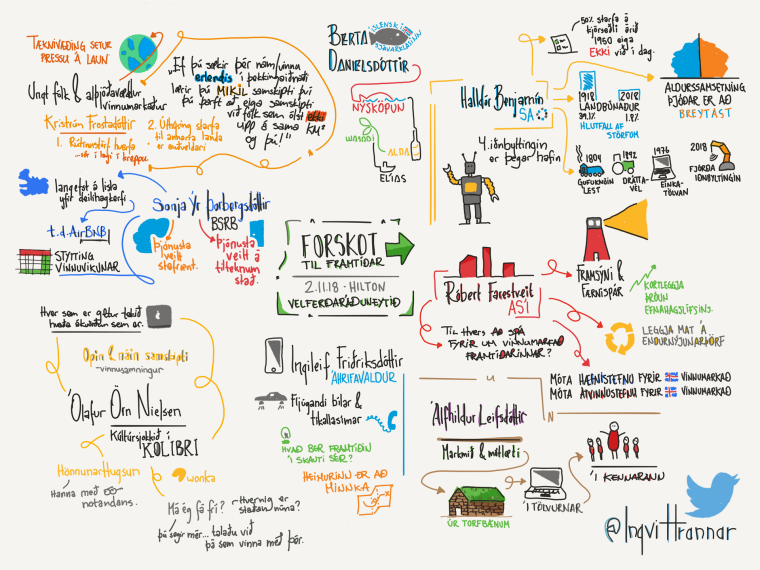 TÆKNIVÆÐING SETUR
PRESSU Á LAUN
Ungt fólk & alþjóðavæddur
vinnumarkaður
Kristrún Frostadóttir
1. Rútínustörf hverfa
2. Úthýsing starfa
til annarra landa
er auðveldari
"Ef þú sækir þér nám/vinnu
erlendis í þekkingaiðnaði
lærir þú MIKIL samskipti því
þú þarft að eiga samskipti
við fólk sem ólst ekki
upp á sama
og þú!"
BERTA
DANIELSDÓTTIR
ÍSLENSKI
SJÁVARKLASINN
NÝSKÖPUN
WASABI
ALDA
ELÍAS
50% starfa á
kjörseðli árið
1960 eiga
EKKI við í dag.
Halldór Benjamín
SA
1918
2018
LANDBÚNAÐUR
39.1%
1.9%
HLUTFALL AF
STÖRFUM
ALDURSSAMSETNING
ÞJÓÐAR ER AÐ
BREYTAST
4. iðnbyltingin
er þegar hafin
1804
GUFUKNÚIN
LEST
1892
DRÁTTA-
VÉL
1976
EINKA-
TÖLVAN
2018
FJÓRÐA
IÐNBYLTINGIN
langefst á lista
yfir deilihagkerfi
t.d. AirBNB
STYTTING
VINNUVIKUNAR
Sonja Ýr Þorbergsdóttir
BSRB
Þjónusta
veitt
stafrænt.
Þjónusta
veitt á
tilteknum
stað.
FORSKOT
TIL FRAMTÍÐAR
2.11.18 - HILTON
VELFERÐARRÁÐUNEYTIÐ
Róbert Farestveit
ASÍ
Til hvers AÐ SPÁ
FYRIR UM VINNUMARKAÐ
FRAMTÍÐARINNAR?
FRAMSÝNI &
FÆRNISPÁR
KORTLEGGJA
ÞRÓUN
EFNAHAGSLÍFSINS.
LEGGJA MAT Á
ENDURNÝJUNARÞÖRF
MÓTA HÆFNISTEFNU FYRIR VINNUMARKAÐ
MÓTA ATVINNUSTEFNU FYRIR VINNUMARKAÐ
Hver sem er getur tekið
hvaða ákvörðun sem er.
Opin & náin samskipti
-vinnusamningur
Ólafur Örn Nielsen
Kúltúrsjokkið í
KOLIBRI
Hönnunarhugsun
Hanna með
notandans.
wonka
Má ég fá frí?
- Hvernig er
staðan núna?
þú segir mér... talaðu við
þá sem vinna með þér.
Ingileif Friðriksdóttir
ÁHRIFAVALDUR
Fljúgandi bílar &
tikallasímar
HVAÐ BER FRAMTÍÐIN
Í SKAUTI SÉR?
HEIMURINN ER AÐ
MINNKA
Álfhildur Leifsdóttir
Markmið & mælieti
ÚR TORFBÆNUM
Í TÖLVURNAR
Í KENNARANN
@IngviHrannar